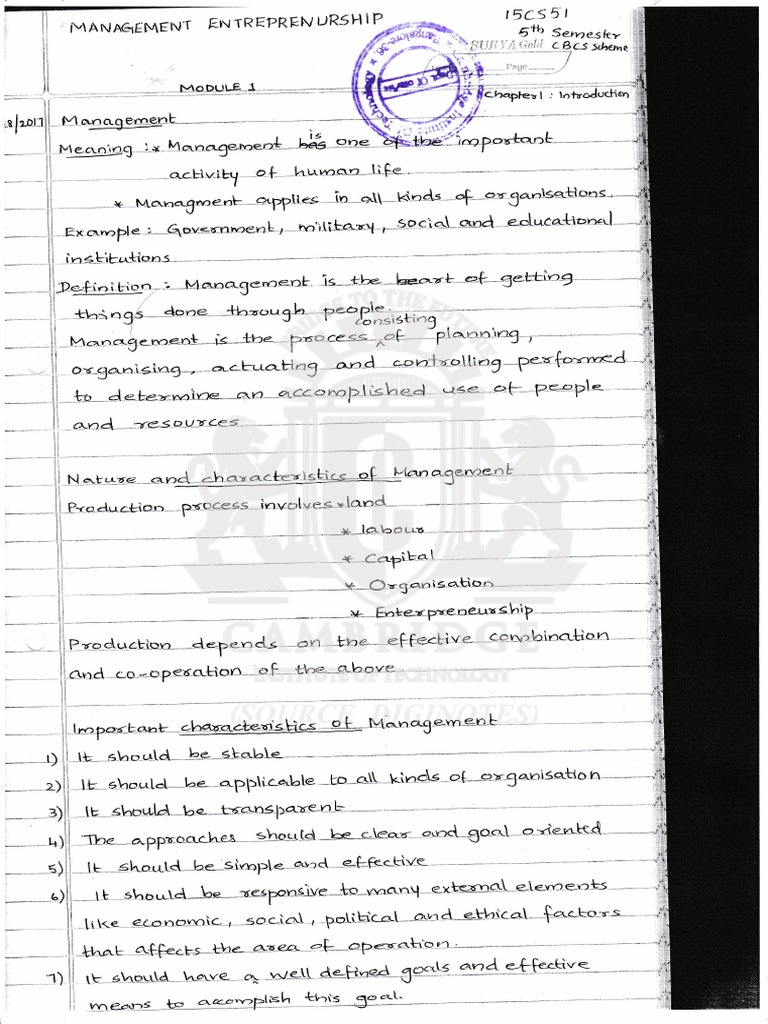 MANAGEMENT ENTREPRENURSHIP
15CS51
5th Semester
SURYA Gold CBCS Scheme
Page
MODULE 1
Chapter 1 : Introduction
8/2017 Management
Meaning : * Management is one of the important
activity of human life.
* Managment applies in all kinds of organisations.
Example : Government, military, social and educational
institutions
Definition : Management is the heart of getting
things done through people.
Management is the process consisting of planning,
organising, actuating and controlling performed
to determine an accomplished use of people
and resources
Nature and characteristics of Management
Production process involves * land
* labour
* Capital
* Organisation
* Enterpreneurship
Production depends on the effective combination
and co-operation of the above.
CAMBRIDGE
INSTITUTE OF TECHNOLOGY
(SOURCE DIGINOTES)
Important characteristics of Management
1) It should be stable
2) It should be applicable to all kinds of organisation
3) It should be transparent
4) The approaches should be clear and goal oriented
5) It should be simple and effective
6) It should be responsive to many external elements
like economic, social, political and ethical factors
that affects the area of operation.
7) It should have a well defined goals and effective
means to accomplish this goal.